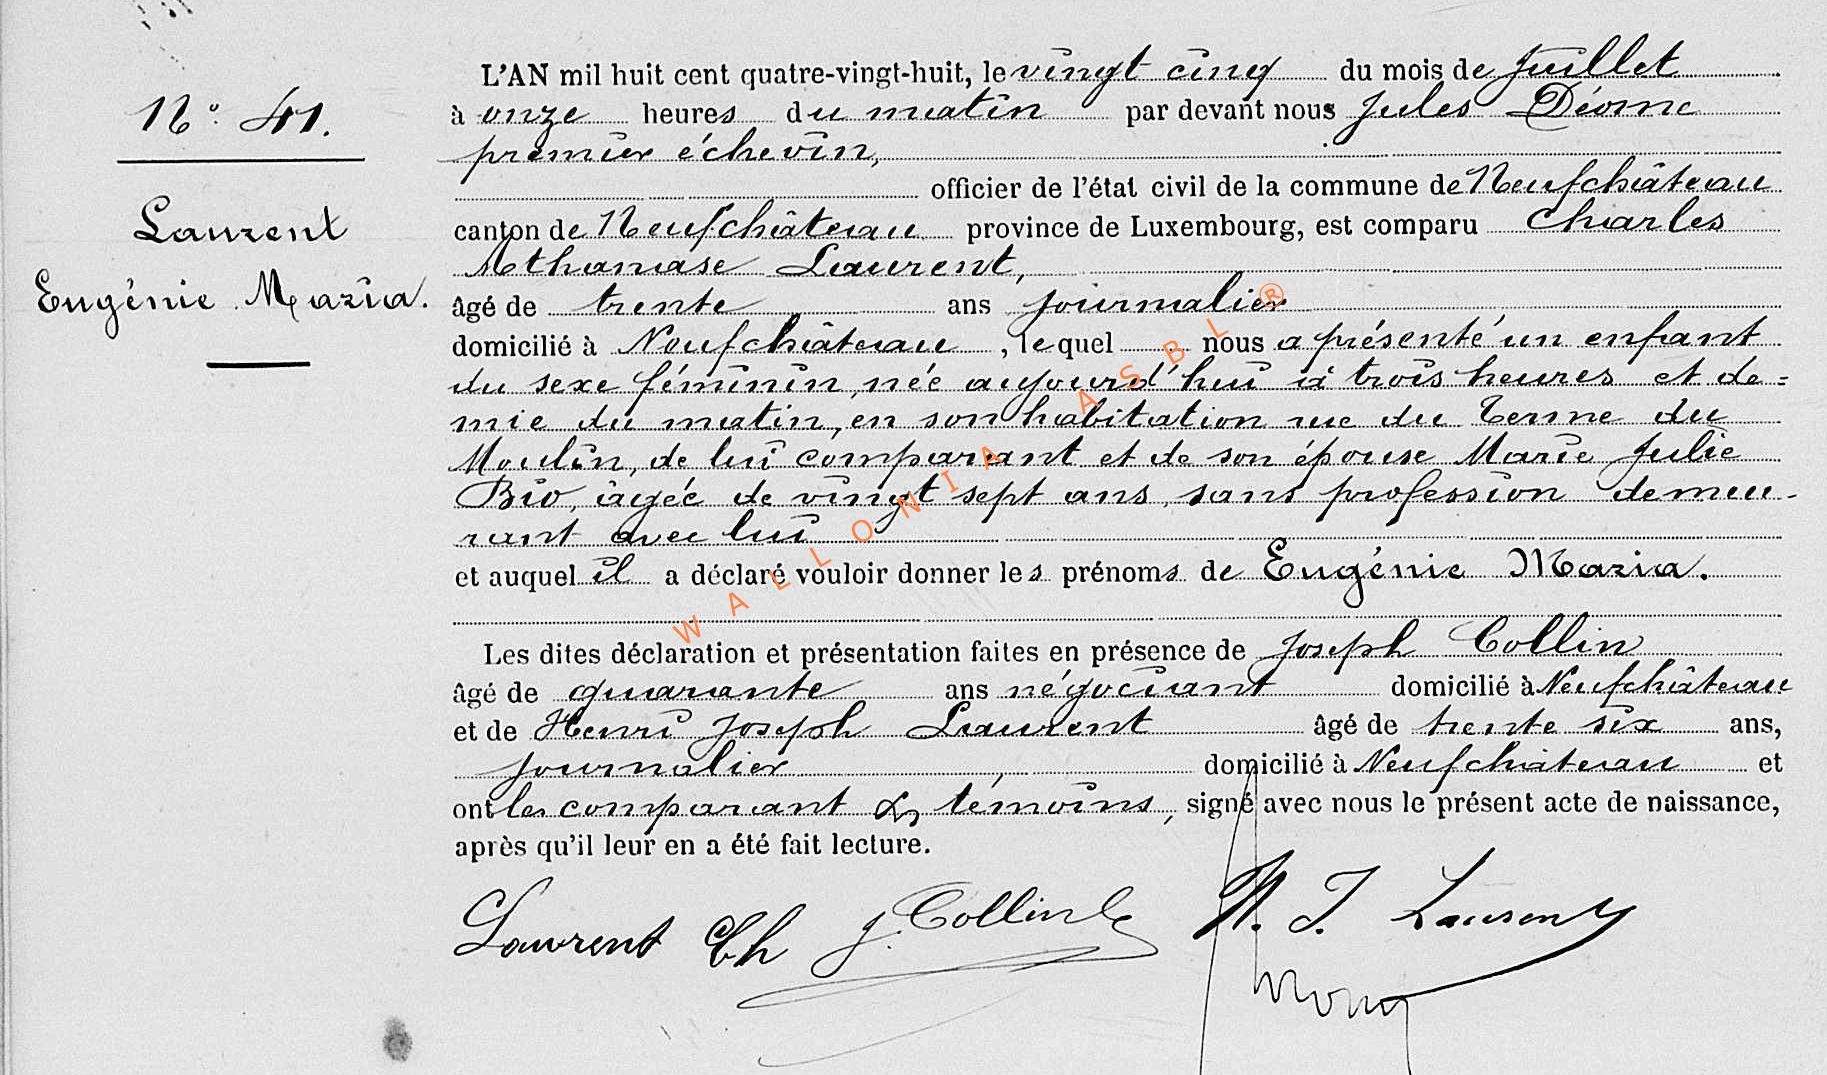 N° 41.
Laurent
Eugénie Maria.
L'AN mil huit cent quatre-vingt-huit, le vingt cinq du mois de Juillet
à onze heures du matin par devant nous Jules Déome
premier échevin,
officier de l'état civil de la commune de Neufchâteau
canton de Neufchâteau province de Luxembourg, est comparu Charles
Athanase Laurent,
âgé de trente ans journalier
domicilié à Neufchâteau, lequel nous a présenté un enfant
du sexe féminin, née aujourd'hui à trois heures et de=
mie du matin, en son habitation rue du Terme du
Moulin, de lui comparant et de son épouse Marie Julie
Bio, âgée de vingt sept ans, sans profession demeu-
rant avec lui
et auquel il a déclaré vouloir donner les prénoms de Eugénie Maria.
Les dites déclaration et présentation faites en présence de Joseph Collin
âgé de quarante ans négociant domicilié à Neufchâteau
et de Henri Joseph Laurent âgé de trente six ans,
journalier domicilié à Neufchâteau et
ont les comparant & témoins, signé avec nous le présent acte de naissance,
après qu'il leur en a été fait lecture.
Laurent Ch J. Collin H. J. Laurent
WALLONIA ASBL ®